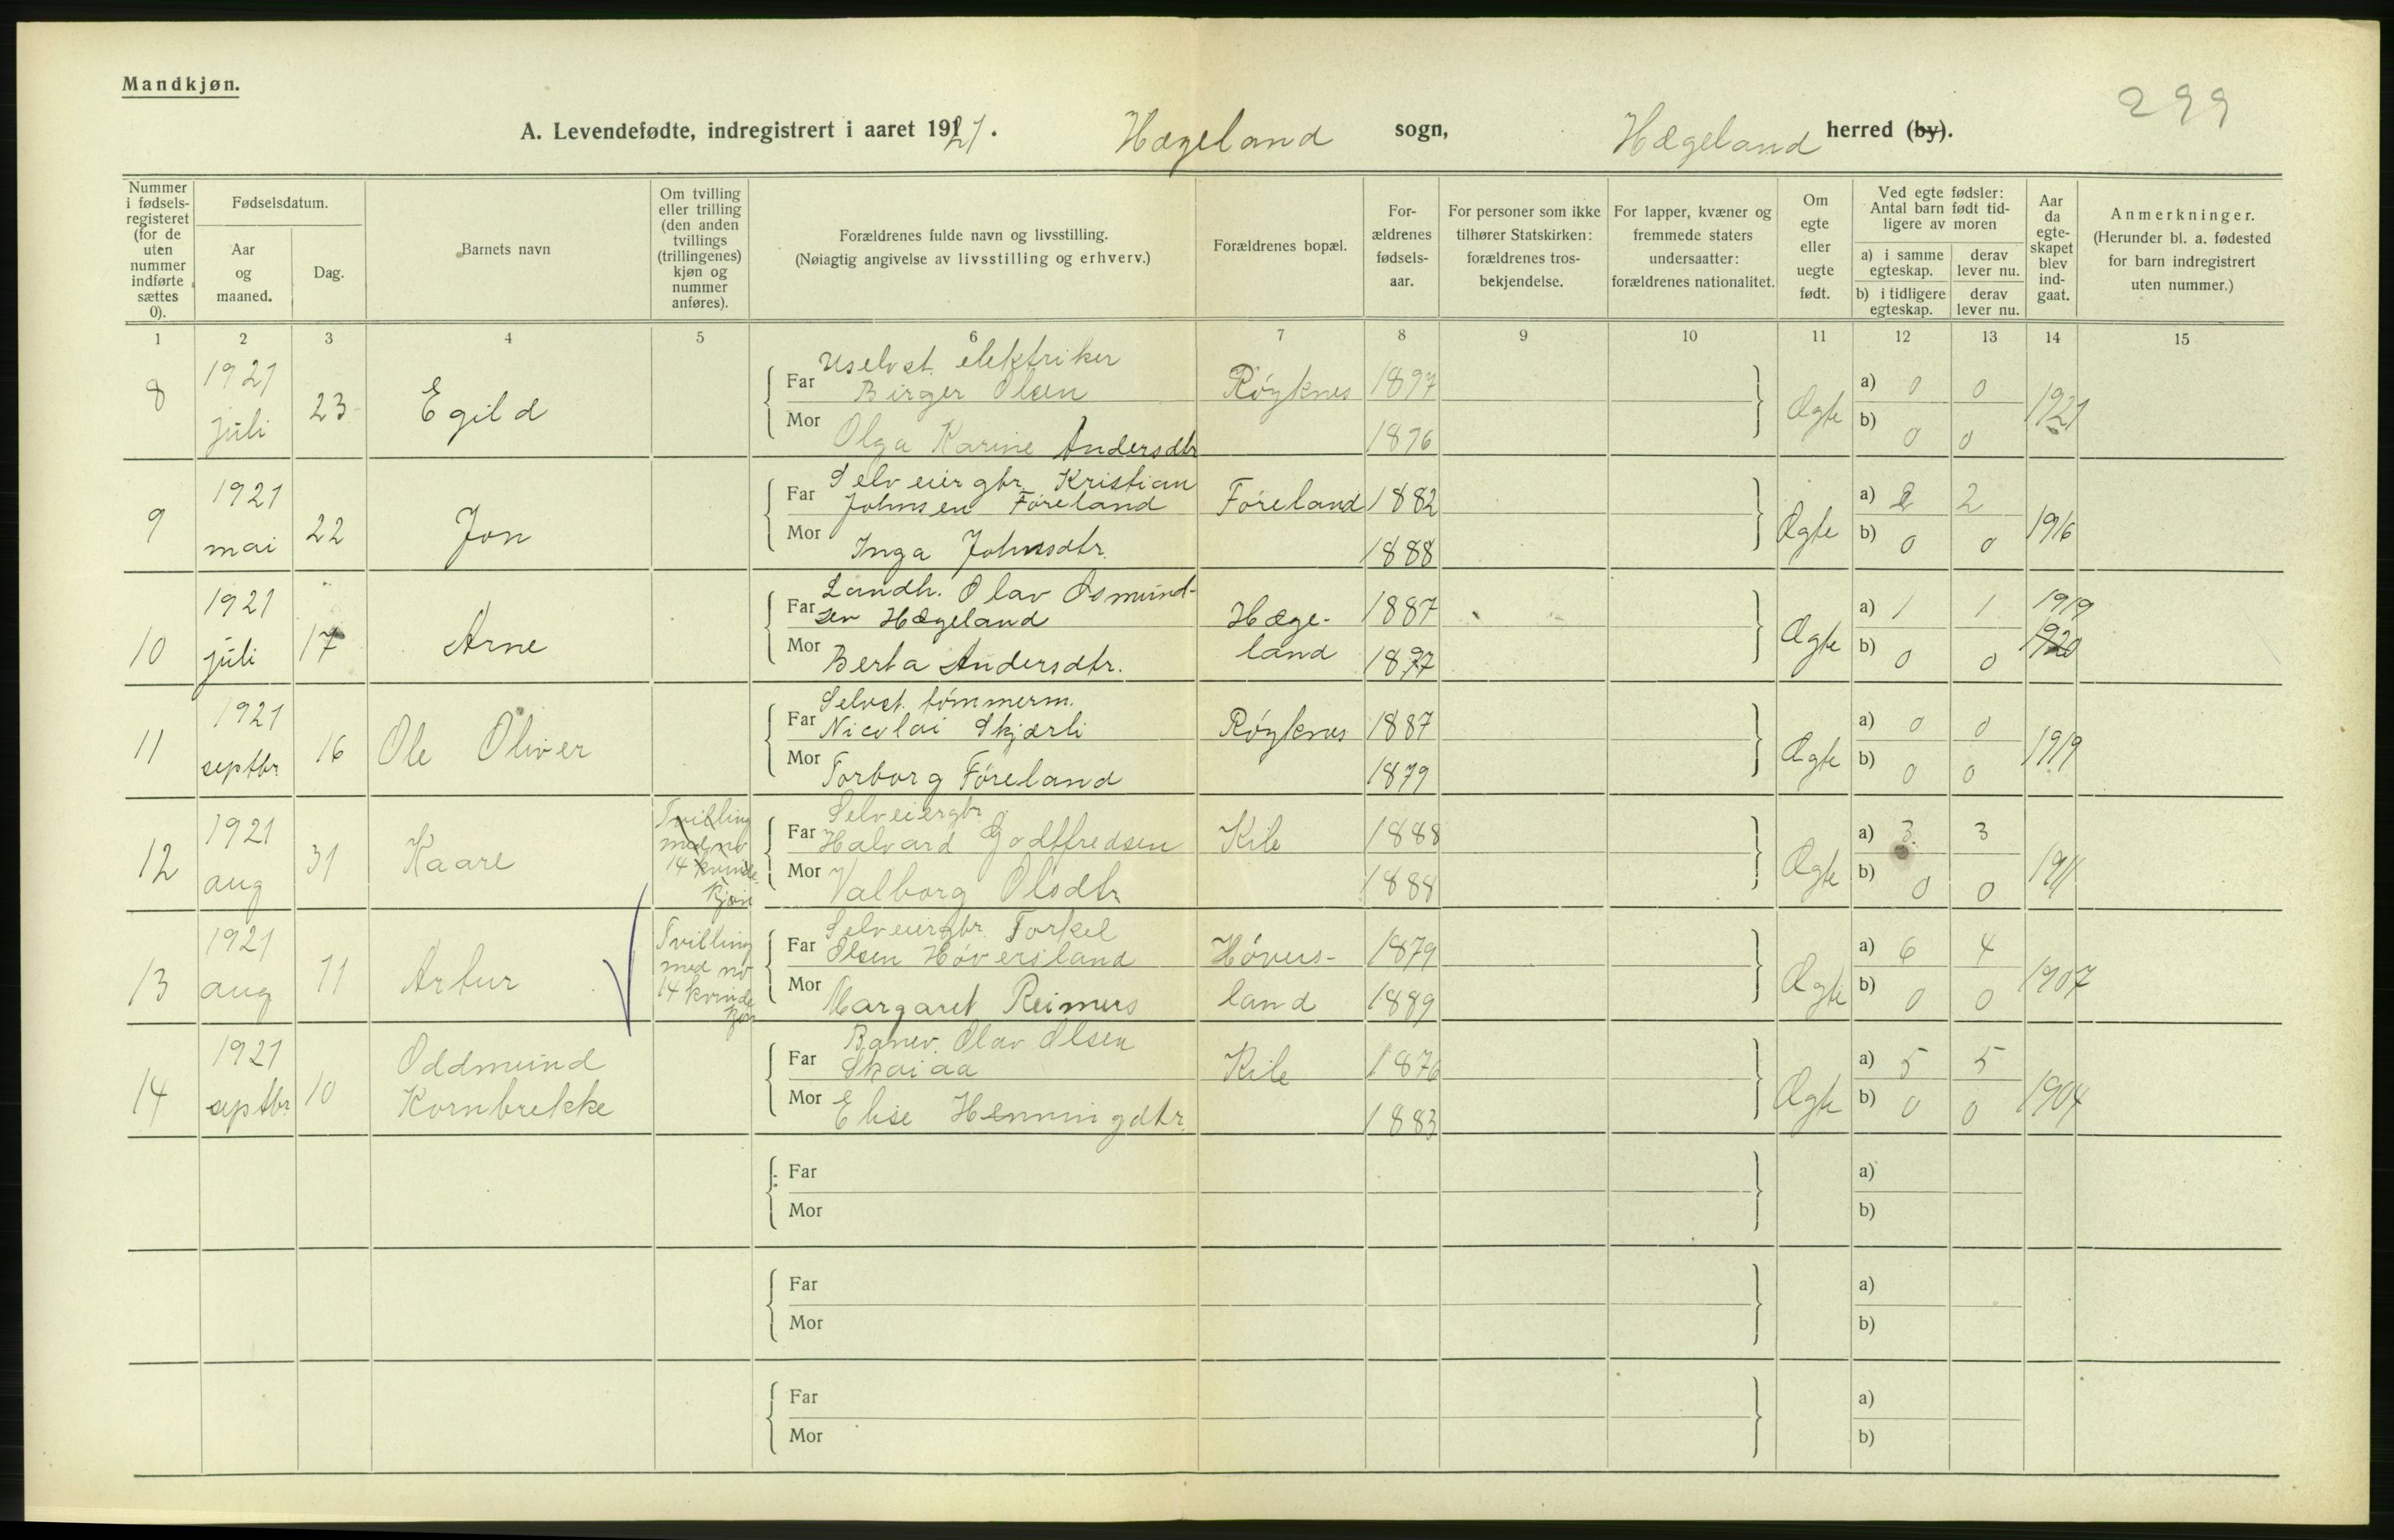 Mandkjøn.
299
A. Levendefødte, indregistrert i aaret 1921. Hægeland sogn, Hægeland herred (by).
Nummer i fødselsregisteret (for de uten nummer indførte sættes 0).
Fødselsdatum.
Aar og maaned.
Dag.
Barnets navn
Om tvilling eller trilling (den anden tvillings (trillingenes) kjøn og nummer anføres).
Forældrenes fulde navn og livsstilling.
(Nøiagtig angivelse av livsstilling og erhverv.)
Forældrenes bopæl.
Forældrenes fødselsaar.
For personer som ikke tilhører Statskirken: forældrenes trosbekjendelse.
For lapper, kvæner og fremmede staters undersaatter: forældrenes nationalitet.
Om egte eller uegte født.
Ved egte fødsler: Antal barn født tidligere av moren
a) i samme egteskap. derav lever nu.
b) i tidligere egteskap. derav lever nu.
Aar da egteskapet blev indgaat.
Anmerkninger.
(Herunder bl. a. fødested for barn indregistrert uten nummer.)
1 2 3 4 5 6 7 8 9 10 11 12 13 14 15
8 1921 juli 23 Egild
Uselvst. elektriker
Far Birger Olsen Røyknes 1897
Mor Olga Karine Andersdtr 1876
Ægte a) 0 0 b) 0 0 1921
9 1921 mai 22 Jon
Selveiergbr. Kristian
Far Johnsen Føreland Føreland 1882
Mor Inga Johnsdtr. 1888
Ægte a) 2 2 b) 0 0 1916
10 1921 juli 17 Arne
Landh. Olav Osmund-
Far sen Hægeland Hæge- 1887
Mor Berta Andersdtr. land 1897
Ægte a) 1 1 b) 0 0 1919 1920
11 1921 septbr 16 Ole Oliver
Selvst. tømmerm.
Far Nicolai Skjærli Røyknes 1887
Mor Torborg Føreland 1879
Ægte a) 0 0 b) 0 0 1919
12 1921 aug 31 Kaare
Tvilling med no 14 kvinde kjøn
Selveiergbr.
Far Halvard Godtfredsen Kile 1888
Mor Valborg Olsdtr 1888
Ægte a) 3 3 b) 0 0 1911
13 1921 aug 11 Artur
Tvilling med no 14 kvinde kjøn
Selveiergbr. Torkel
Far Olsen Høversland Høvers- 1879
Mor Margaret Reimers land 1889
Ægte a) 6 4 b) 0 0 1907
14 1921 septbr. 10 Oddmund Kornbrekke
Banev. Olav Olsen
Far Skaiaa Kile 1876
Mor Elise Henningdtr. 1883
Ægte a) 5 5 b) 0 0 1904
Far a)
Mor b)
Far a)
Mor b)
Far a)
Mor b)